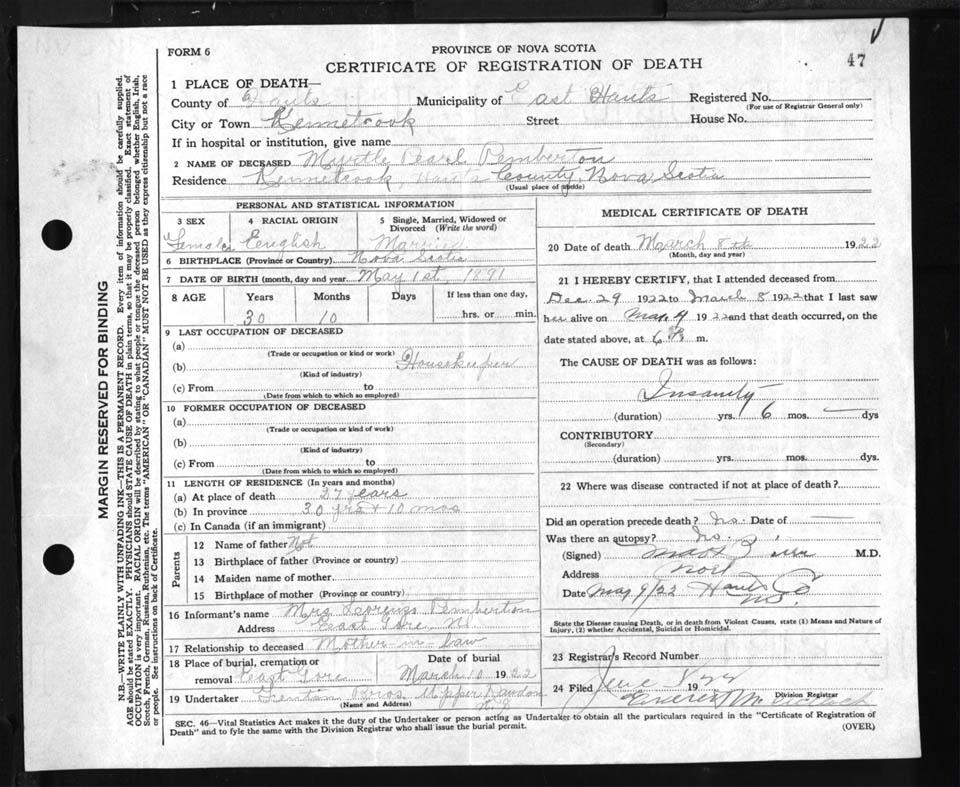 47
FORM 6
PROVINCE OF NOVA SCOTIA
CERTIFICATE OF REGISTRATION OF DEATH
1 PLACE OF DEATH—
County of Hants Municipality of East Hants Registered No.
(For use of Registrar General only)
City or Town Kennetcook Street House No.
If in hospital or institution, give name
2 NAME OF DECEASED Myrtle Pearl Pemberton
Residence Kennetcook, Hants County, Nova Scotia
(Usual place of abode)
PERSONAL AND STATISTICAL INFORMATION
3 SEX 4 RACIAL ORIGIN 5 Single, Married, Widowed or Divorced (Write the word)
Female English Married
6 BIRTHPLACE (Province or Country) Nova Scotia
7 DATE OF BIRTH (month, day and year) May 1st, 1891
8 AGE Years Months Days If less than one day,
30 10 hrs. or min.
9 LAST OCCUPATION OF DECEASED
(a)
(Trade or occupation or kind or work)
(b) Housekeeper
(Kind of industry)
(c) From to
(Date from which to which so employed)
10 FORMER OCCUPATION OF DECEASED
(a)
(Trade or occupation or kind of work)
(b)
(Kind of industry)
(c) From to
(Date from which to which so employed)
11 LENGTH OF RESIDENCE (In years and months)
(a) At place of death 27 years
(b) In province 30 yrs + 10 mos
(c) In Canada (if an immigrant)
Parents
12 Name of father Not
13 Birthplace of father (Province or country)
14 Maiden name of mother
15 Birthplace of mother (Province or country)
16 Informant's name Mrs Pemberton
Address East Gore NS
17 Relationship to deceased Mother in law
18 Place of burial, cremation or removal East Gore Date of burial March 10 1922
19 Undertaker Bros Upper Rawdon NS
(Name and Address)
MEDICAL CERTIFICATE OF DEATH
20 Date of death March 8th 1922
(Month, day and year)
21 I HEREBY CERTIFY, that I attended deceased from
Dec. 29 1922 to March 8 1922 that I last saw
her alive on 1922 and that death occurred, on the
date stated above, at 6 m.
The CAUSE OF DEATH was as follows:
Insanity
(duration) yrs. 6 mos. — dys
CONTRIBUTORY
(Secondary)
(duration) yrs. mos. dys.
22 Where was disease contracted if not at place of death?
Did an operation precede death? No. Date of —
Was there an autopsy? No.
(Signed) M.D.
Address Noel
Date May 9/22 Hants Co NS.
State the Disease causing Death, or in death from Violent Causes, state (1) Means and Nature of
Injury, (2) whether Accidental, Suicidal or Homicidal.
23 Registrar's Record Number
24 Filed June 19
Division Registrar
SEC. 46—Vital Statistics Act makes it the duty of the Undertaker or person acting as Undertaker to obtain all the particulars required in the "Certificate of Registration of
Death" and to fyle the same with the Division Registrar who shall issue the burial permit. (OVER)
MARGIN RESERVED FOR BINDING
N.B.—WRITE PLAINLY WITH UNFADING INK—THIS IS A PERMANENT RECORD. Every item of information should be carefully supplied.
AGE should be stated EXACTLY. PHYSICIANS should STATE CAUSE OF DEATH in plain terms, so that it may be properly classified. Exact statement of
OCCUPATION is very important. RACIAL ORIGIN will be described by stating to what people or tongue the deceased person belonged whether English, Irish,
Scotch, French, German, Russian, Ruthenian, etc. The terms "AMERICAN" OR "CANADIAN" MUST NOT BE USED as they express citizenship but not a race
or people. See instructions on back of Certificate.